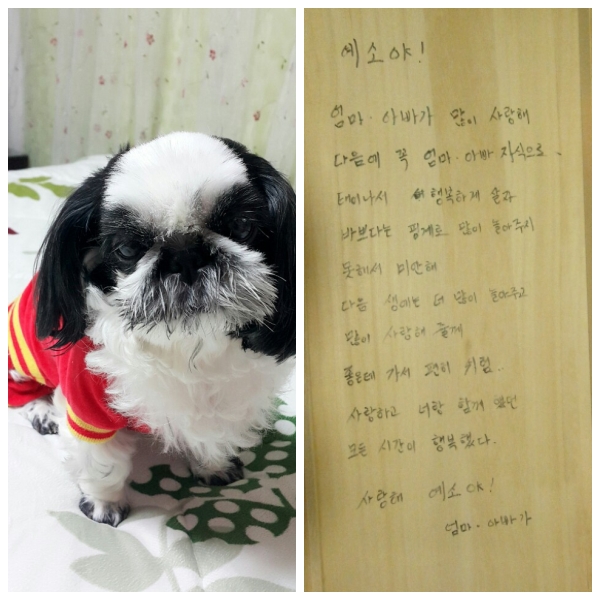 예소야!
엄마·아빠가 많이 사랑해
다음에 꼭 엄마·아빠 자식으로
태어나서 행복하게 살자
바쁘다는 핑계로 많이 놀아주지
못해서 미안해
다음 생에는 더 많이 놀아주고
많이 사랑해 줄게
좋은데 가서 편히
사랑하고 너랑 함께 했던
모든 시간이 행복했다.
사랑해 예소야!
엄마·아빠가